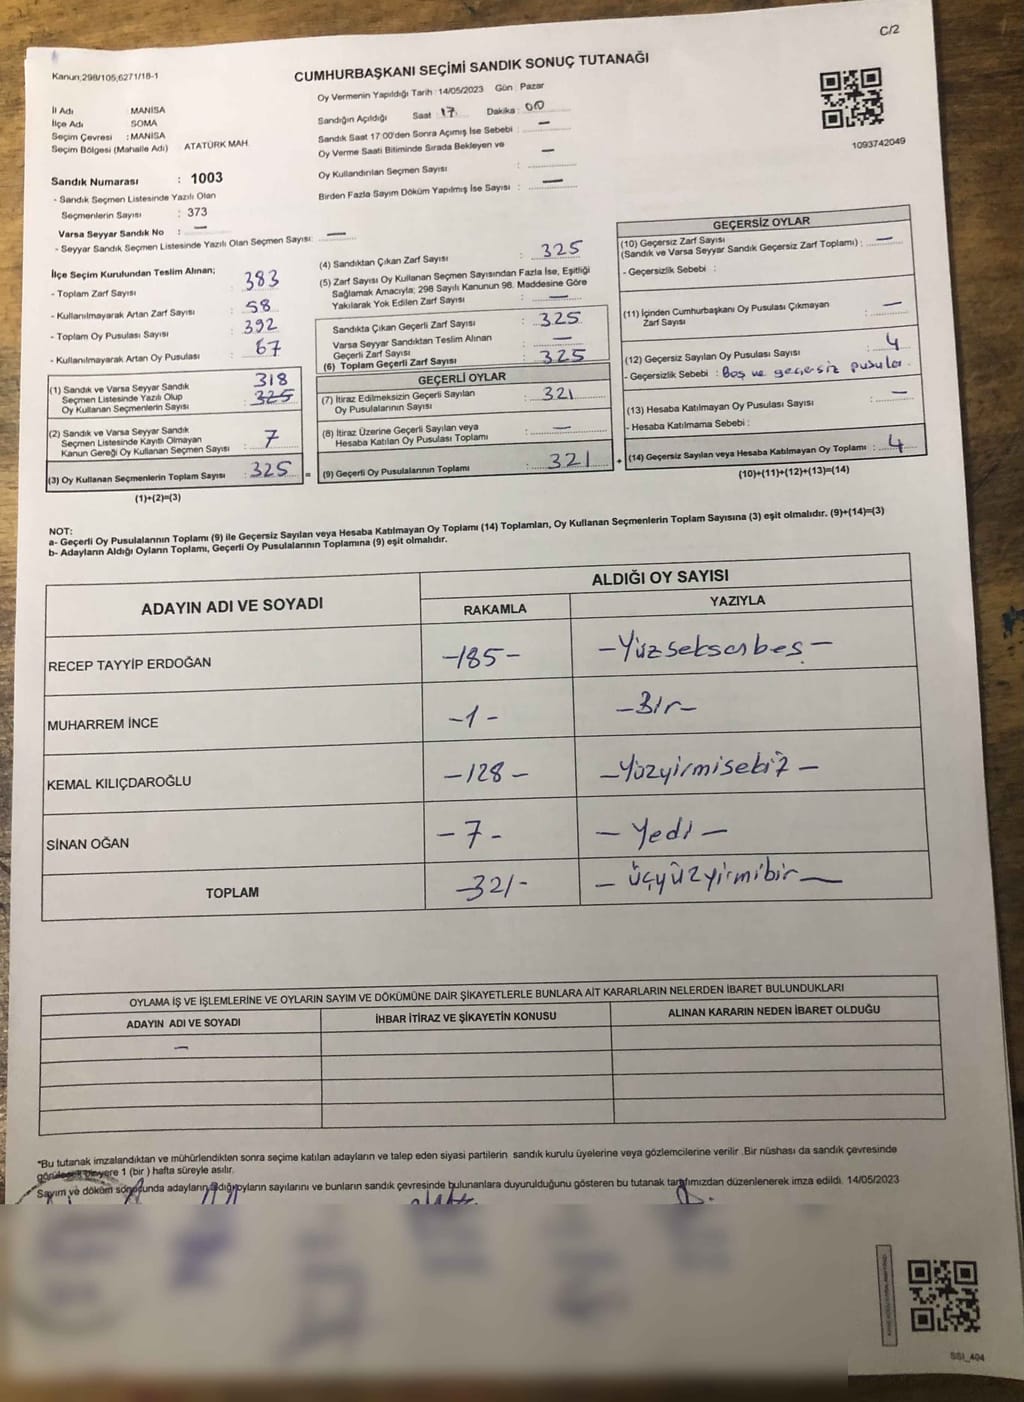 C/2
Kanun;298/105,6271/18-1
CUMHURBAŞKANI SEÇİMİ SANDIK SONUÇ TUTANAĞI
Oy Vermenin Yapıldığı Tarih : 14/05/2023 Gün : Pazar
İl Adı MANİSA
İlçe Adı SOMA
Seçim Çevresi : MANİSA
Seçim Bölgesi (Mahalle Adı) ATATÜRK MAH.
Sandığın Açıldığı Saat 17 Dakika : 00
Sandık Saat 17:00'den Sonra Açımış İse Sebebi : —
Oy Verme Saati Bitiminde Sırada Bekleyen ve
Oy Kullandırılan Seçmen Sayısı : —
Birden Fazla Sayım Döküm Yapılmış İse Sayısı : —
1093742049
Sandık Numarası : 1003
- Sandık Seçmen Listesinde Yazılı Olan
Seçmenlerin Sayısı : 373
Varsa Seyyar Sandık No : —
- Seyyar Sandık Seçmen Listesinde Yazılı Olan Seçmen Sayısı: —
İlçe Seçim Kurulundan Teslim Alınan;
- Toplam Zarf Sayısı : 383
- Kullanılmayarak Artan Zarf Sayısı : 58
- Toplam Oy Pusulası Sayısı : 392
- Kullanılmayarak Artan Oy Pusulası : 67
(1) Sandık ve Varsa Seyyar Sandık
Seçmen Listesinde Yazılı Olup
Oy Kullanan Seçmenlerin Sayısı : 318 325
(2) Sandık ve Varsa Seyyar Sandık
Seçmen Listesinde Kayıtlı Olmayan
Kanun Gereği Oy Kullanan Seçmen Sayısı : 7
(3) Oy Kullanan Seçmenlerin Toplam Sayısı : 325 =
(1)+(2)=(3)
(4) Sandıktan Çıkan Zarf Sayısı : 325
(5) Zarf Sayısı Oy Kullanan Seçmen Sayısından Fazla İse, Eşitliği
Sağlamak Amacıyla; 298 Sayılı Kanunun 98. Maddesine Göre
Yakılarak Yok Edilen Zarf Sayısı : —
Sandıkta Çıkan Geçerli Zarf Sayısı : 325
Varsa Seyyar Sandıktan Teslim Alınan
Geçerli Zarf Sayısı : —
(6) Toplam Geçerli Zarf Sayısı : 325
GEÇERLİ OYLAR
(7) İtiraz Edilmeksizin Geçerli Sayılan
Oy Pusulalarının Sayısı : 321
(8) İtiraz Üzerine Geçerli Sayılan veya
Hesaba Katılan Oy Pusulası Toplamı : —
(9) Geçerli Oy Pusulalarının Toplamı : 321 +
GEÇERSİZ OYLAR
(10) Geçersiz Zarf Sayısı
(Sandık ve Varsa Seyyar Sandık Geçersiz Zarf Toplamı) : —
- Geçersizlik Sebebi :
(11) İçinden Cumhurbaşkanı Oy Pusulası Çıkmayan
Zarf Sayısı : —
(12) Geçersiz Sayılan Oy Pusulası Sayısı : 4
- Geçersizlik Sebebi : Boş ve geçersiz pusula.
(13) Hesaba Katılmayan Oy Pusulası Sayısı : —
- Hesaba Katılmama Sebebi :
(14) Geçersiz Sayılan veya Hesaba Katılmayan Oy Toplamı : 4
(10)+(11)+(12)+(13)=(14)
NOT:
a- Geçerli Oy Pusulasının Toplamı (9) ile Geçersiz Sayılan veya Hesaba Katılmayan Oy Toplamı (14) Toplamları, Oy Kullanan Seçmenlerin Toplam Sayısına (3) eşit olmalıdır. (9)+(14)=(3)
b- Adayların Aldığı Oyların Toplamı, Geçerli Oy Pusulalarının Toplamına (9) eşit olmalıdır.
ADAYIN ADI VE SOYADI ALDIĞI OY SAYISI
RAKAMLA YAZIYLA
RECEP TAYYİP ERDOĞAN -185- -Yüzseksenbeş-
MUHARREM İNCE -1- -Bir-
KEMAL KILIÇDAROĞLU -128- -Yüzyirmisekiz-
SİNAN OĞAN -7- -Yedi-
TOPLAM -321- -Üçyüzyirmibir-
OYLAMA İŞ VE İŞLEMLERİNE VE OYLARIN SAYIM VE DÖKÜMÜNE DAİR ŞİKAYETLERLE BUNLARA AİT KARARLARIN NELERDEN İBARET BULUNDUKLARI
ADAYIN ADI VE SOYADI İHBAR İTİRAZ VE ŞİKAYETİN KONUSU ALINAN KARARIN NEDEN İBARET OLDUĞU
—
*Bu tutanak imzalandıktan ve mühürlendikten sonra seçime katılan adayların ve talep eden siyasi partilerin sandık kurulu üyelerine veya gözlemcilerine verilir .Bir nüshası da sandık çevresinde
görülecek biryere 1 (bir ) hafta süreyle asılır.
Sayım ve döküm sonucunda adayların aldığı oyların sayılarını ve bunların sandık çevresinde bulunanlara duyurulduğunu gösteren bu tutanak tarafımızdan düzenlenerek imza edildi. 14/05/2023
SSI_404